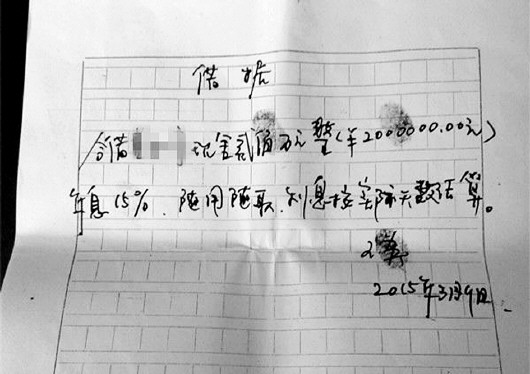 借据
今借 现金贰佰万元整(¥2000000.00元)
年息15%.随用随取.利息按实际天数结算。
2015年3月9日